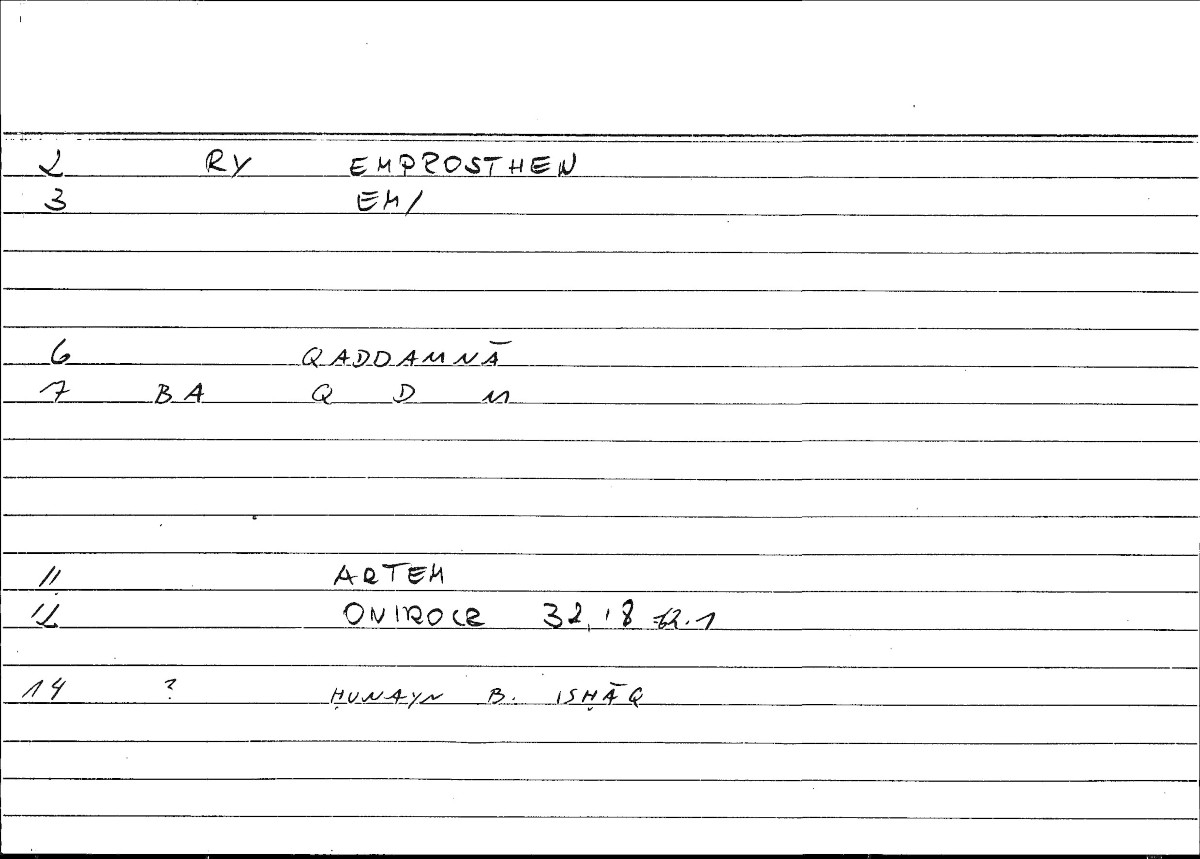 2 RY EMPROSTHEN
3 EM/
6 QADDAMNĀ
7 BA Q D M
11 ARTEM
12 ONIROCR 32,18
14 ? ḤUNAYN B. ISḤĀQ